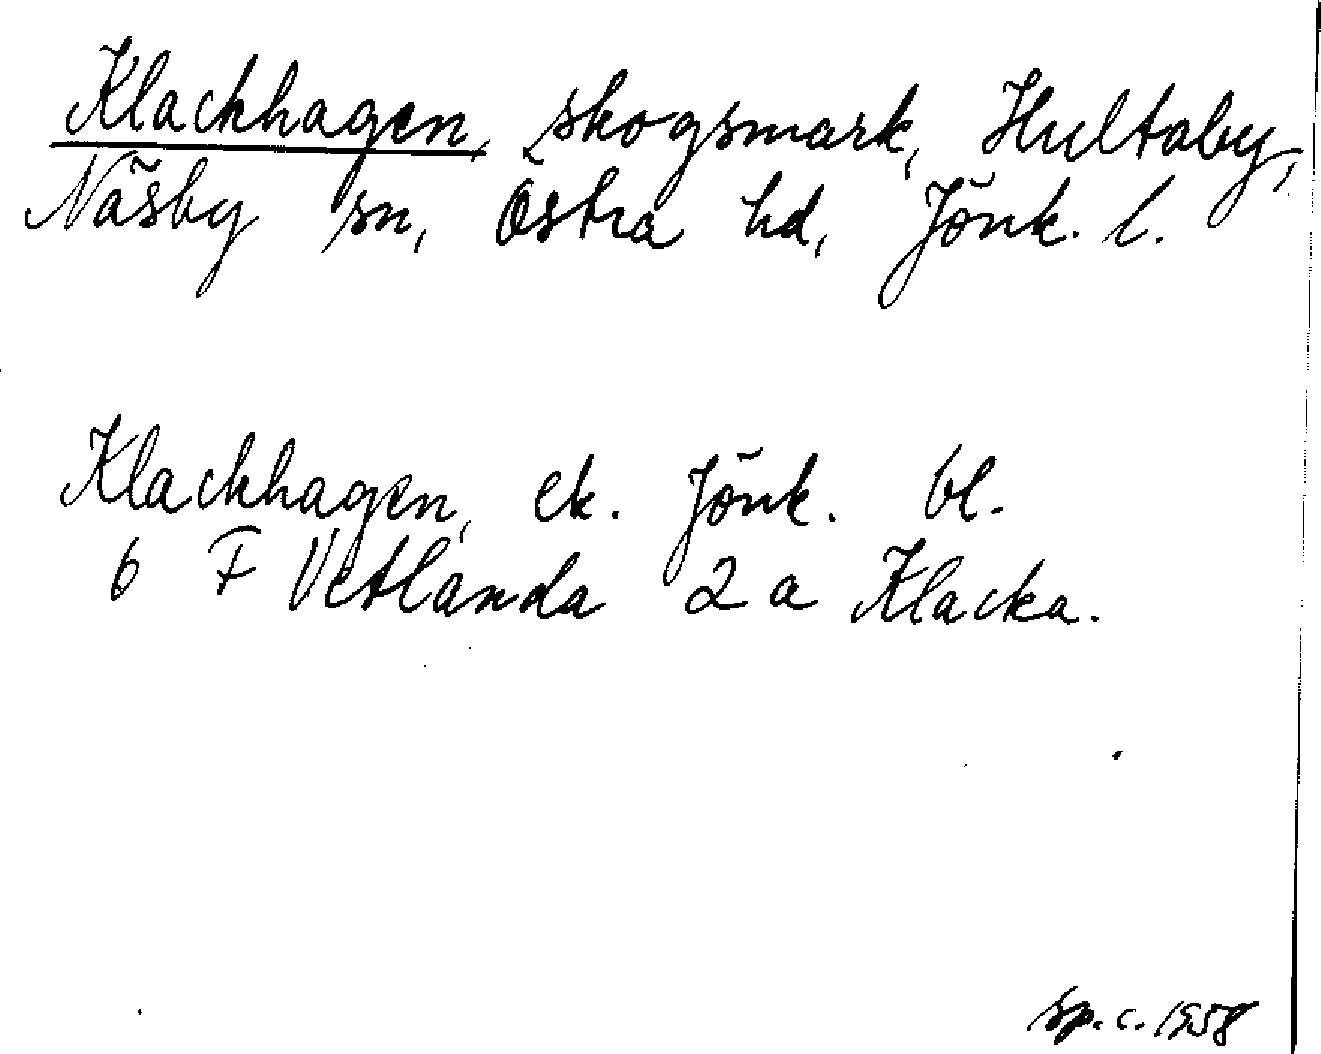 Klackhagen, skogsmark, Hultaby,
Näsby sn, Östra hd, Jönk. l.
Klackhagen, ek. Jönk. bl.
6 F Vetlanda 2 a Klacka.
Sp. c. 1958